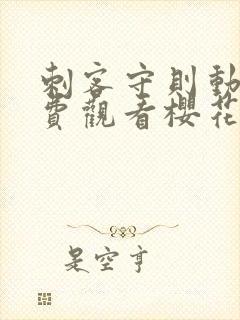 刺客守則動
費觀看櫻花
是空亨